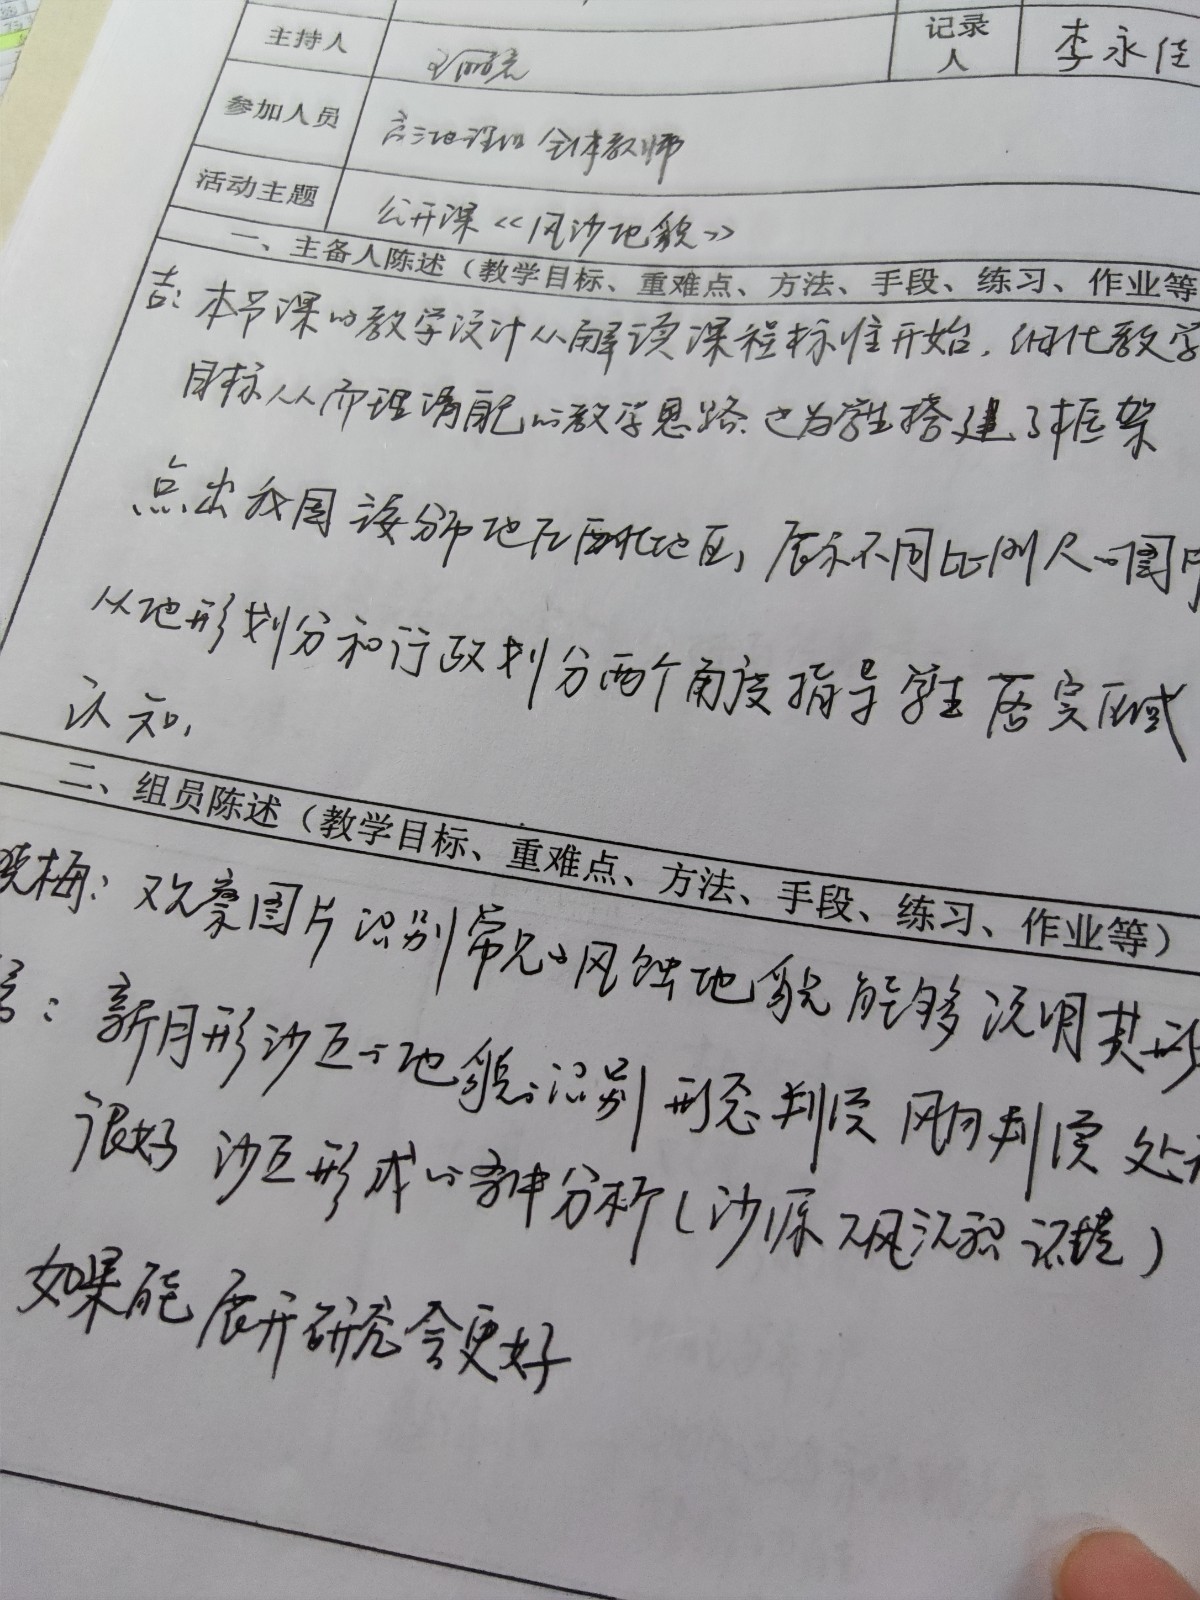 主持人 记录人 李永佳
参加人员 高三地理组 全体教师
活动主题 公开课《风沙地貌》
一、主备人陈述（教学目标、重难点、方法、手段、练习、作业等
吉：本节课的教学设计从解读课程标准开始，细化教学
目标从而理清自己的教学思路.也为学生搭建了框架
点出我国该分布地在西北地区，展示不同比例尺的图片
从地形划分和行政划分两个角度指导学生落实区域
认知，
二、组员陈述（教学目标、重难点、方法、手段、练习、作业等）
晓梅：观察图片识别常见的风蚀地貌能够说明其形
：新月形沙丘的地貌识别 形态判读 风向判读 处
很好 沙丘形成的条件分析（沙源 风 沉积 环境）
如果能展开研究会更好